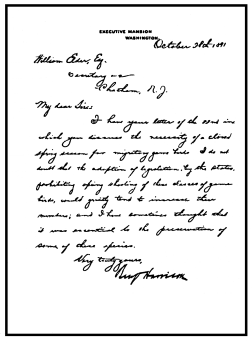 EXECUTIVE MANSION
WASHINGTON.
October 28th, 1891
William
Secretary
Chatham, N.J.
My dear Sir:
I have your letter of the 22nd in
which you discuss the necessity of a closed
spring season for migratory game birds. I do not
doubt that the adoption of legislation, by the States,
prohibiting spring shooting of these classes of game
birds, would greatly tend to increase their
numbers; and I have sometimes thought that
it was essential to the preservation of
some of these species.
Very truly yours,
Benj Harrison